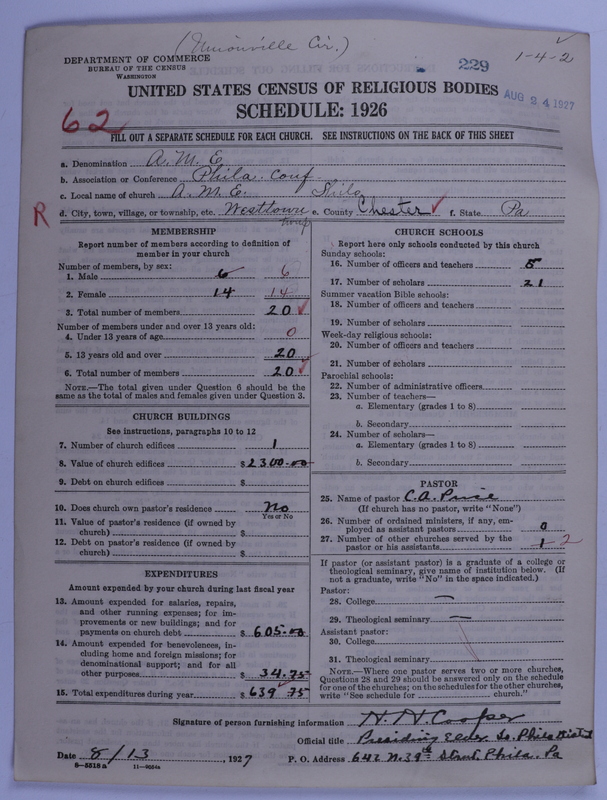 (Unionville Cir.)
1-4-2
DEPARTMENT OF COMMERCE
BUREAU OF THE CENSUS
WASHINGTON
229
UNITED STATES CENSUS OF RELIGIOUS BODIES
AUG 24 1927
SCHEDULE: 1926
62
FILL OUT A SEPARATE SCHEDULE FOR EACH CHURCH. SEE INSTRUCTIONS ON THE BACK OF THIS SHEET
a. Denomination A.M.E.
b. Association or Conference Phila. Conf.
c. Local name of church A.M.E. Shilo
R
d. City, town, village, or township, etc. Westtown twp e. County Chester f. State Pa
MEMBERSHIP
Report number of members according to definition of
member in your church
Number of members, by sex:
1. Male 6 6
2. Female 14 14
3. Total number of members 20
Number of members under and over 13 years old:
4. Under 13 years of age 0
5. 13 years old and over 20
6. Total number of members 20
NOTE.—The total given under Question 6 should be the
same as the total of males and females given under Question 3.
CHURCH BUILDINGS
See instructions, paragraphs 10 to 12
7. Number of church edifices 1
8. Value of church edifices $2300.00
9. Debt on church edifices $
10. Does church own pastor's residence No
Yes or No
11. Value of pastor's residence (if owned by
church) $
12. Debt on pastor's residence (if owned by
church) $
EXPENDITURES
Amount expended by your church during last fiscal year
13. Amount expended for salaries, repairs,
and other running expenses; for im-
provements or new buildings; and for
payments on church debt $605.00
14. Amount expended for benevolences, in-
cluding home and foreign missions; for
denominational support; and for all
other purposes $34.75
15. Total expenditures during year $639.75
CHURCH SCHOOLS
Report here only schools conducted by this church
Sunday schools:
16. Number of officers and teachers 5
17. Number of scholars 21
Summer vacation Bible schools:
18. Number of officers and teachers
19. Number of scholars
Week-day religious schools:
20. Number of officers and teachers
21. Number of scholars
Parochial schools:
22. Number of administrative officers
23. Number of teachers—
a. Elementary (grades 1 to 8)
b. Secondary
24. Number of scholars—
a. Elementary (grades 1 to 8)
b. Secondary
PASTOR
25. Name of pastor C.A. Price
(If church has no pastor, write "None")
26. Number of ordained ministers, if any, em-
ployed as assistant pastors 0
27. Number of other churches served by the
pastor or his assistants 1 2
If pastor (or assistant pastor) is a graduate of a college or
theological seminary, give name of institution below. (If
not a graduate, write "No" in the space indicated.)
Pastor:
28. College —
29. Theological seminary —
Assistant pastor:
30. College
31. Theological seminary
NOTE.—Where one pastor serves two or more churches,
Questions 28 and 29 should be answered only on the schedule
for one of the churches; on the schedules for the other churches,
write "See schedule for church."
Signature of person furnishing information H. H. Cooper
Official title Presiding Elder So. Phila District
Date 8/13, 1927 P. O. Address 642 N. 39th Street, Phila. Pa
8-5518a 11-9654a